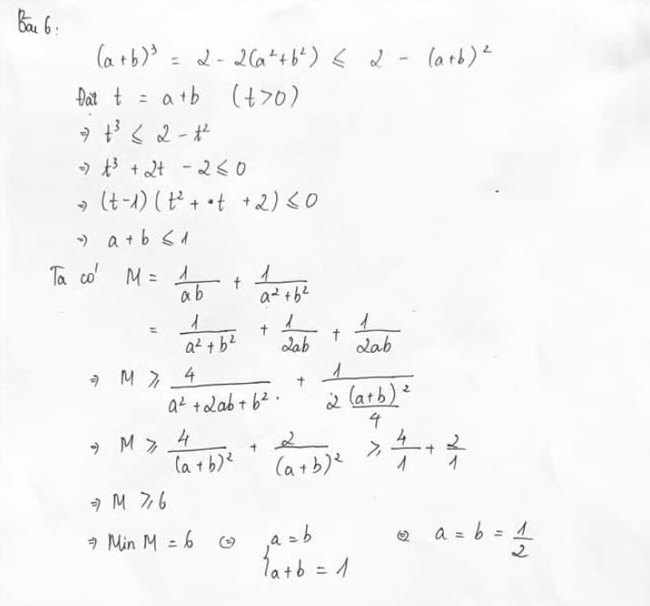 Bài 6:
(a+b)³ = 2 - 2(a²+b²) ≤ 2 - (a+b)²
Đặt t = a+b (t>0)
⇒ t³ ≤ 2 - t²
⇒ t³ + 2t - 2 ≤ 0
⇒ (t-1)(t² + t + 2) ≤ 0
⇒ a + b ≤ 1
Ta có M = 1/ab + 1/(a²+b²)
= 1/(a²+b²) + 1/2ab + 1/2ab
⇒ M ≥ 4/(a²+2ab+b²) + 1/(2(a+b)²/4)
⇒ M ≥ 4/(a+b)² + 2/(a+b)² ≥ 4/1 + 2/1
⇒ M ≥ 6
⇒ Min M = 6 ⇔ { a = b ⇔ a = b = 1/2
a+b = 1